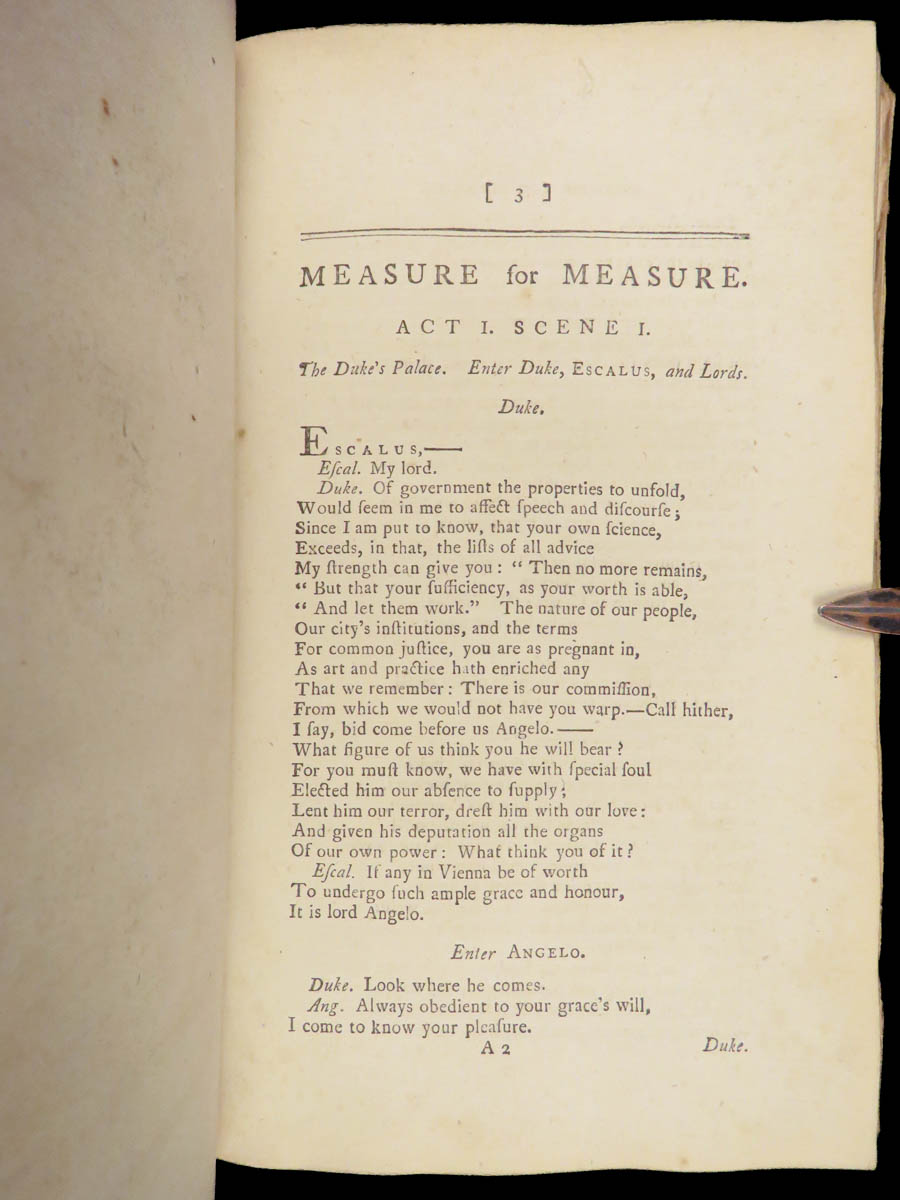 [ 3 ]
MEASURE for MEASURE.
ACT I. SCENE I.
The Duke's Palace. Enter Duke, ESCALUS, and Lords.
Duke.
ESCALUS,——
Eſcal. My lord.
Duke. Of government the properties to unfold,
Would ſeem in me to affect ſpeech and diſcourſe;
Since I am put to know, that your own ſcience,
Exceeds, in that, the liſts of all advice
My ſtrength can give you: “ Then no more remains,
“ But that your ſufficiency, as your worth is able,
“ And let them work.” The nature of our people,
Our city's inſtitutions, and the terms
For common juſtice, you are as pregnant in,
As art and practice hath enriched any
That we remember: There is our commiſſion,
From which we would not have you warp.—Call hither,
I ſay, bid come before us Angelo.——
What figure of us think you he will bear?
For you muſt know, we have with ſpecial ſoul
Elected him our abſence to ſupply;
Lent him our terror, dreſt him with our love:
And given his deputation all the organs
Of our own power: What think you of it?
Eſcal. If any in Vienna be of worth
To undergo ſuch ample grace and honour,
It is lord Angelo.
Enter ANGELO.
Duke. Look where he comes.
Ang. Always obedient to your grace's will,
I come to know your pleaſure.
A 2 Duke.